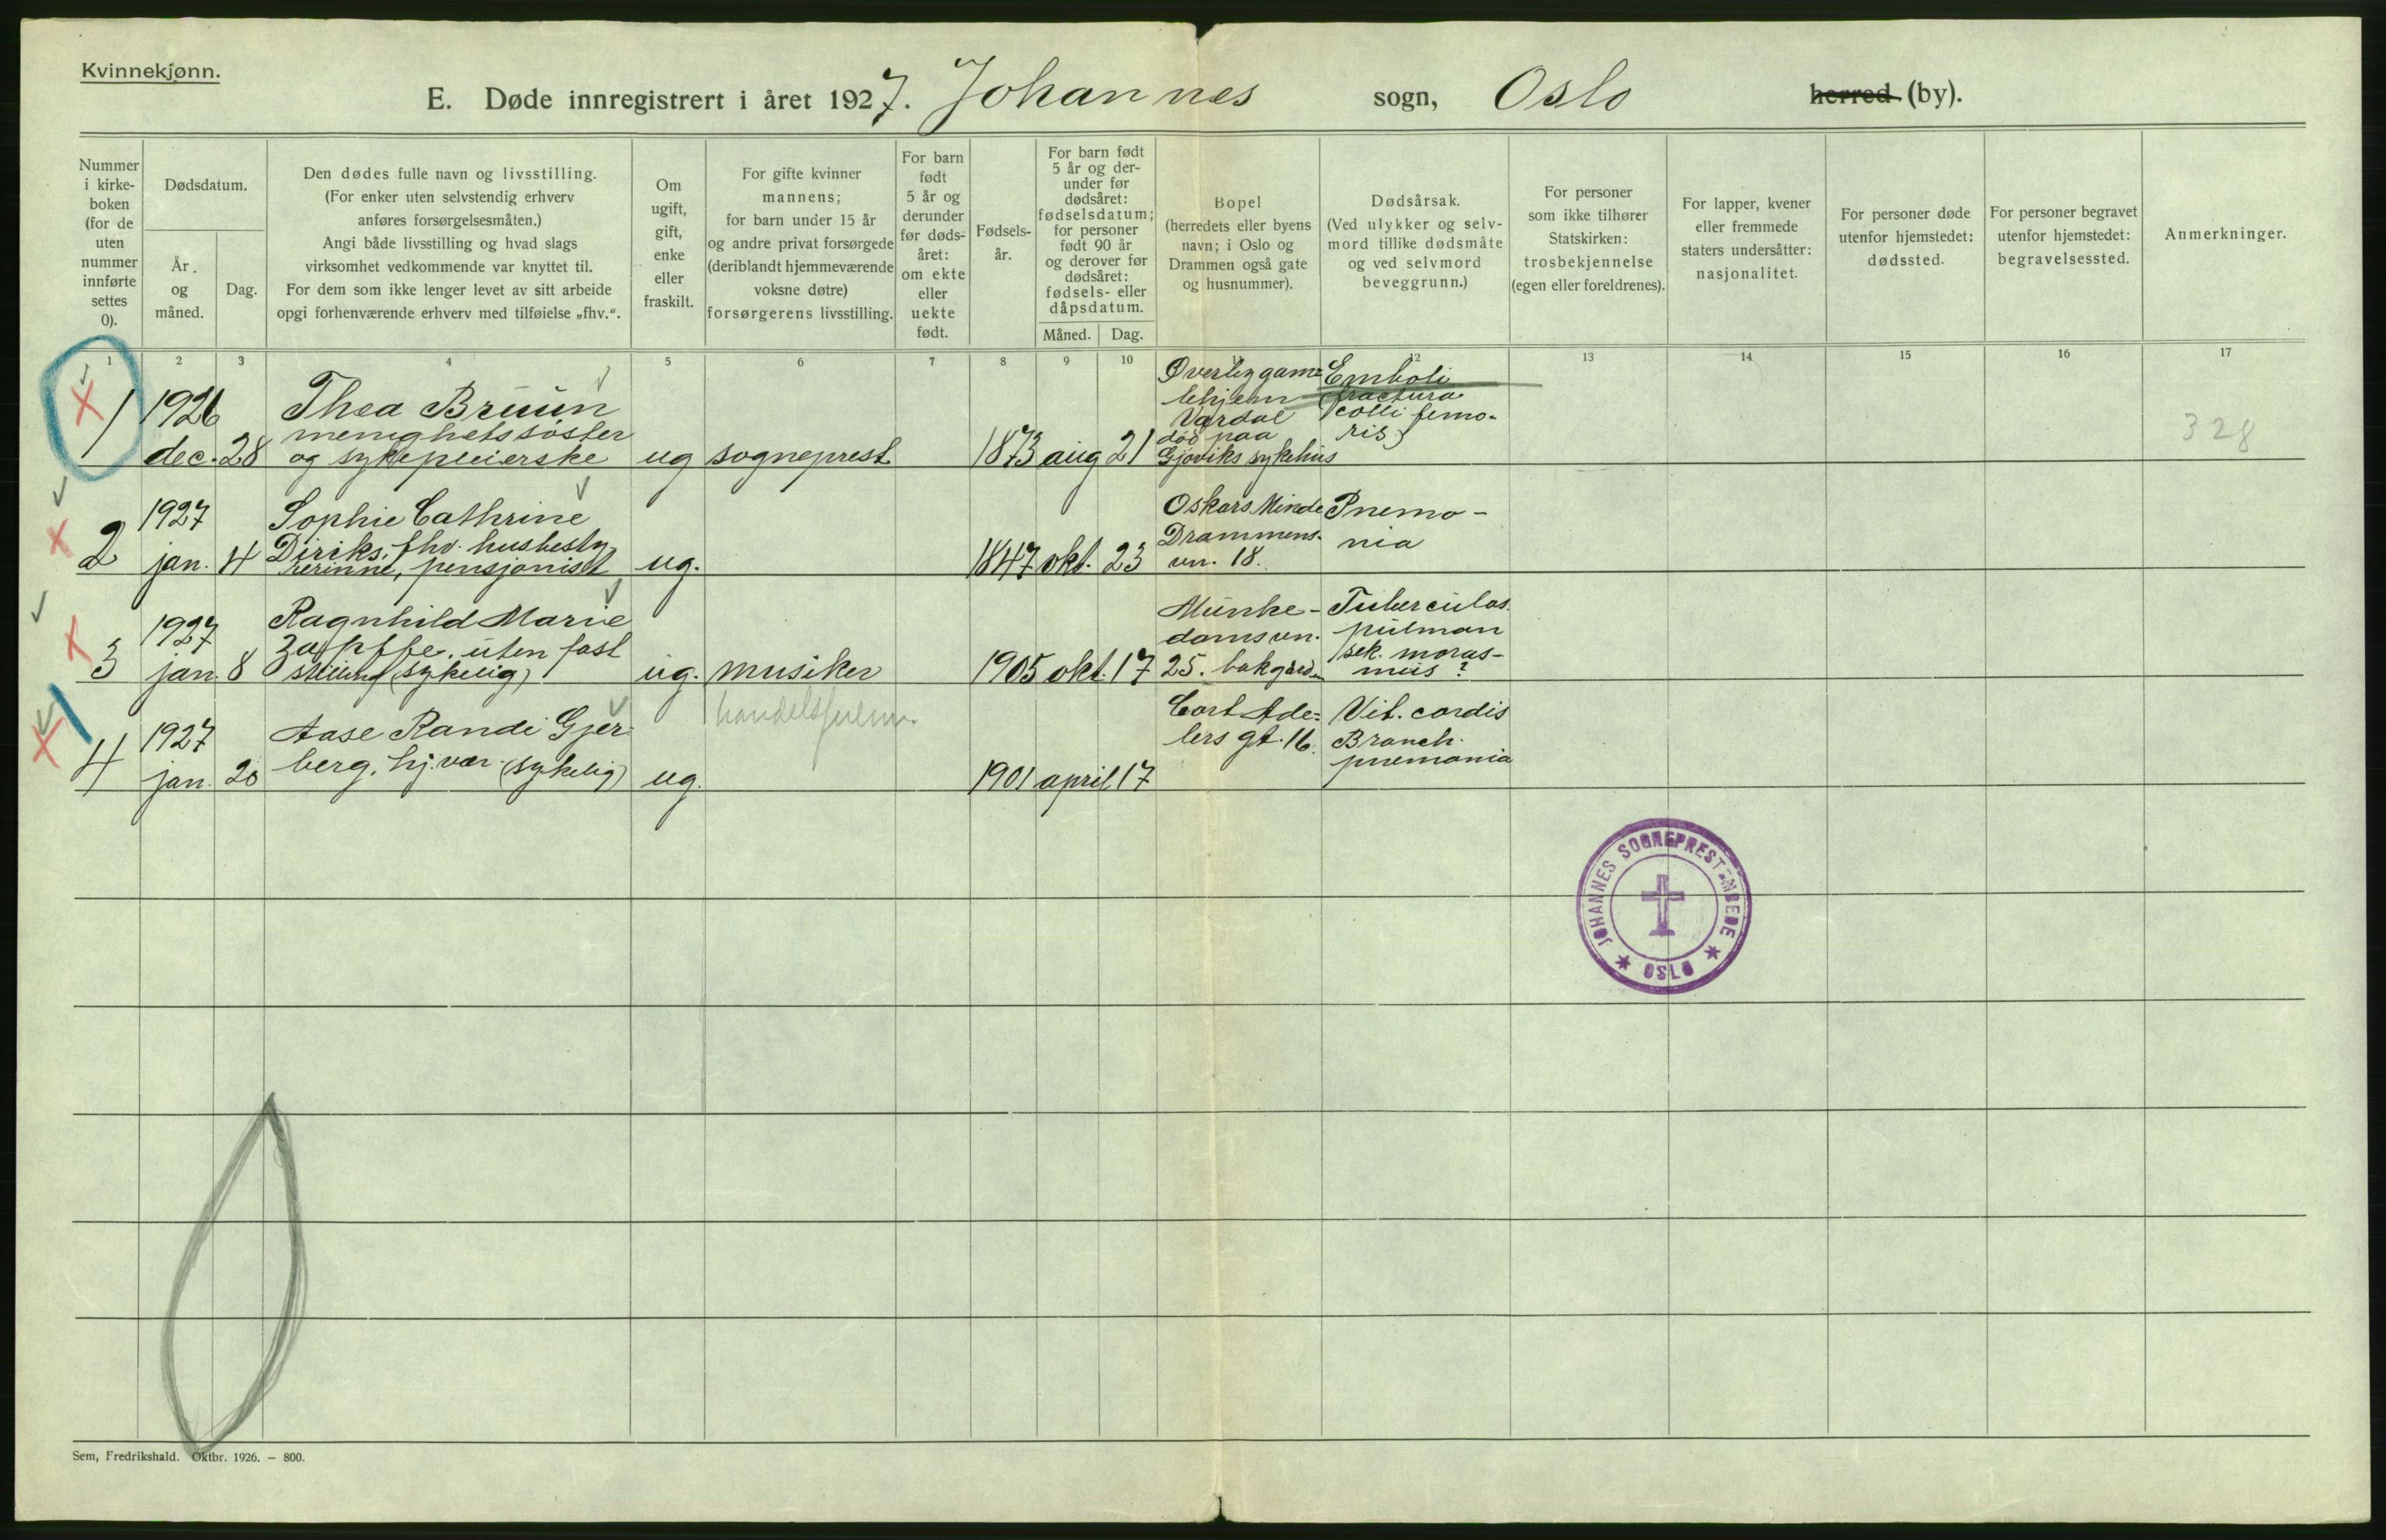 Kvinnekjønn.
E. Døde innregistrert i året 1927. Johannes sogn, Oslo herred (by).
Nummer
i kirke-
boken
(for de
uten
nummer
innførte
settes
0).
Dødsdatum.
År
og
måned.
Dag.
Den dødes fulle navn og livsstilling.
(For enker uten selvstendig erhverv
anføres forsørgelsesmåten.)
Angi både livsstilling og hvad slags
virksomhet vedkommende var knyttet til.
For dem som ikke lenger levet av sitt arbeide
opgi forhenværende erhverv med tilføielse „fhv.“.
Om
ugift,
gift,
enke
eller
fraskilt.
For gifte kvinner
mannens;
for barn under 15 år
og andre privat forsørgede
(deriblandt hjemmeværende
voksne døtre)
forsørgerens livsstilling.
For barn
født
5 år og
derunder
før døds-
året:
om ekte
eller
uekte
født.
Fødsels-
år.
For barn født
5 år og der-
under før
dødsåret:
fødselsdatum;
for personer
født 90 år
og derover før
dødsåret:
fødsels- eller
dåpsdatum.
Måned. Dag.
Bopel
(herredets eller byens
navn; i Oslo og
Drammen også gate
og husnummer).
Dødsårsak.
(Ved ulykker og selv-
mord tillike dødsmåte
og ved selvmord
beveggrunn.)
For personer
som ikke tilhører
Statskirken:
trosbekjennelse
(egen eller foreldrenes).
For lapper, kvener
eller fremmede
staters undersåtter:
nasjonalitet.
For personer døde
utenfor hjemstedet:
dødssted.
For personer begravet
utenfor hjemstedet:
begravelsessted.
Anmerkninger.
1 2 3 4 5 6 7 8 9 10 11 12 13 14 15 16 17
1
1926
dec. 28
Thea Bruun
menighetssøster
og sykepleierske
ug
sogneprest
1873 aug 21
Øverby gam=
lehjem
Vardal
død paa
Gjøviks sykehus
Emboli
(fractura
colli femo-
ris)
328
2
1927
jan. 4
Sophie Cathrine
Diriks, fhv. husbesty
rerinne, pensjonist
ug.
1847 okt. 23
Oskars Minde
Drammens-
vn. 18.
Pnemo-
nia
3
1927
jan. 8
Ragnhild Marie
Zapffe, uten fast
stilling (sykelig)
ug.
musiker
1905 okt. 17
Munke-
damsvn.
25. bakgård.
Tuberculos.
pulmon
sek. moras-
mus ?
4
1927
jan. 20
Aase Randi Gjer-
berg, hj. vær. (sykelig)
ug.
1901 april 17
Cort Ade=
lers gt. 16.
Vit. cordis
Bronch.
pnemonia
JOHANNES SOGNEPREST-EMBEDE
OSLO
Sem, Fredrikshald. Oktbr. 1926. — 800.